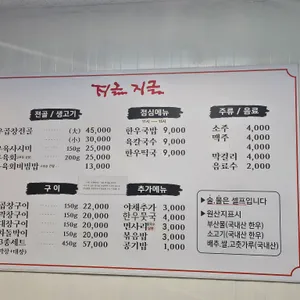 지글 지글
전골 / 생고기
곱창전골 (大) 45,000
(小) 30,000
육사시미 150g 25,000
육회 200g 25,000
육회비빔밥 13,000
점심메뉴
한우국밥 9,000
육칼국수 9,000
한우떡국 9,000
주류 / 음료
소주 4,000
맥주 4,000
막걸리 4,000
음료수 2,000
구 이
곱창구이 150g 22,000
막창구이 150g 20,000
대창구이 150g 20,000
차돌박이 150g 20,000
3종세트 450g 57,000
추가메뉴
야채추가 3,000
한우뭇국 4,000
면사리 2,000
볶음밥 3,000
공기밥 1,000
▶술,물은 셀프입니다
▶원산지표시
부산물(국내산 한우)
소고기(국내산 한우)
배추.쌀.고춧가루(국내산)